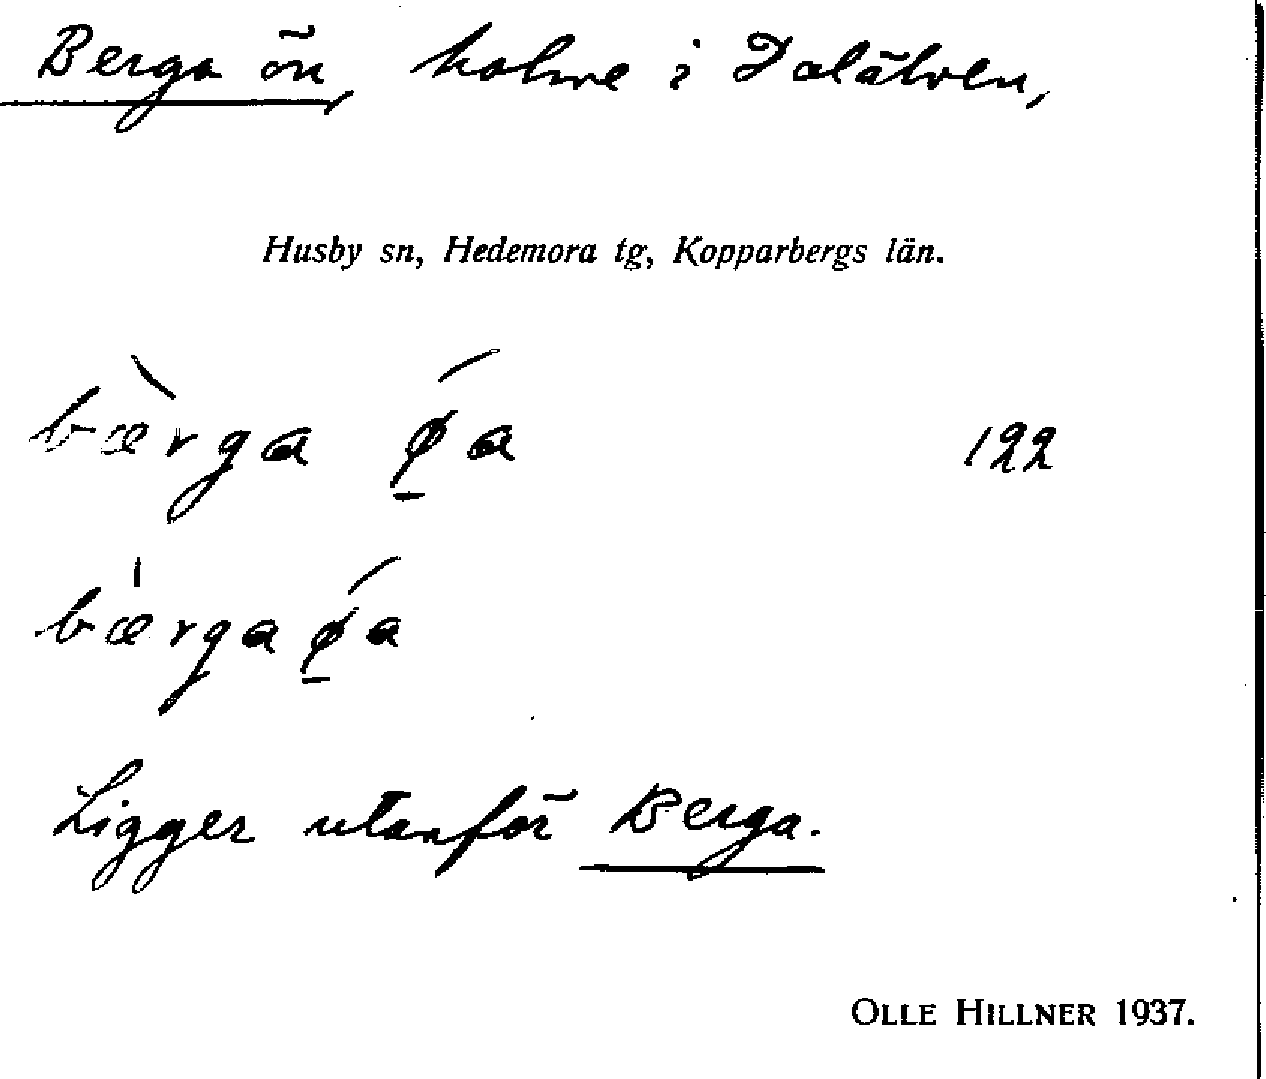 Berga ön, holme i Dalälven,
Husby sn, Hedemora tg, Kopparbergs län.
bæ̀rga ǿ̱a 122
bæ̍rgaǿ̱a
Ligger utanför Berga.
OLLE HILLNER 1937.